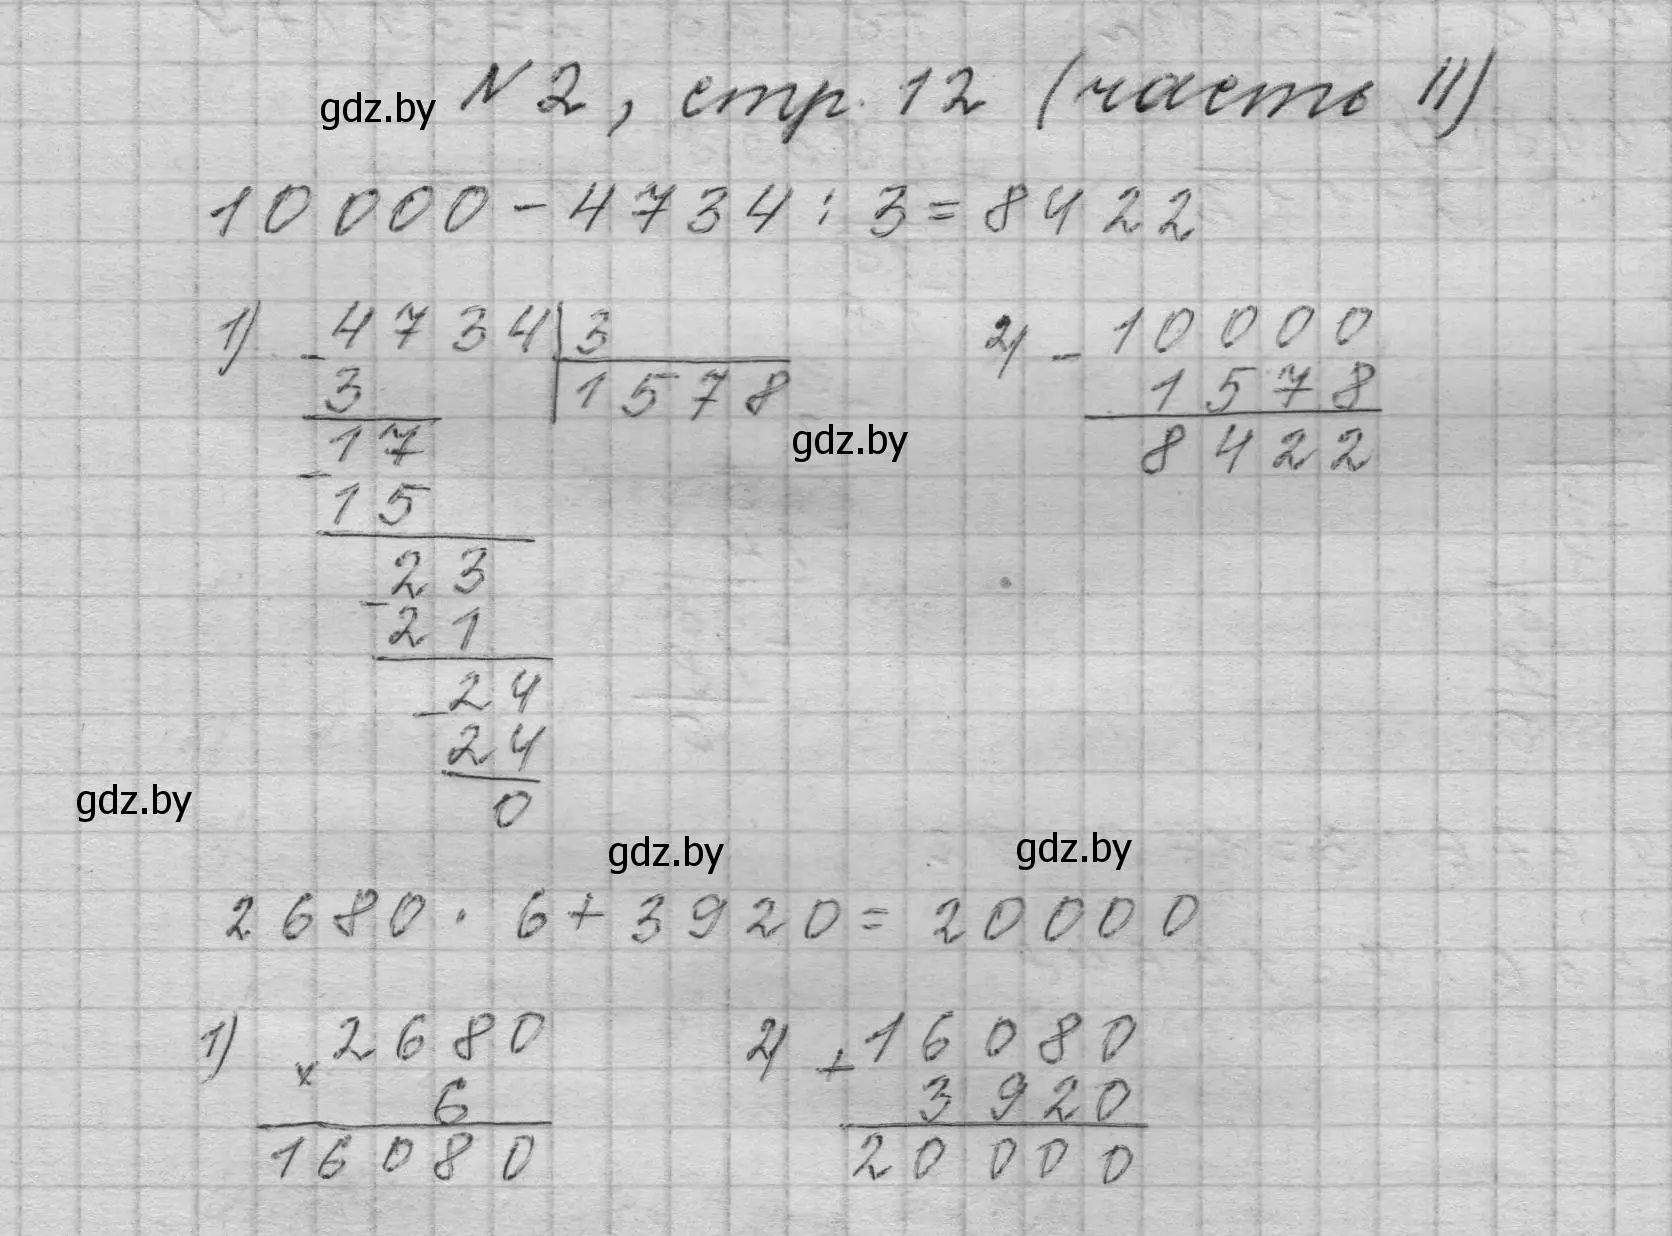 gdz.by N 2, стр. 12 (часть II)
10000 - 4734 : 3 = 8422
1) - 4734 | 3
3 1578
17
- 15
23
- 21
24
- 24
0
2) - 10000
1578
8422
gdz.by
gdz.by
gdz.by
gdz.by
2680 · 6 + 3920 = 20000
1) × 2680
6
16080
2) + 16080
3920
20000